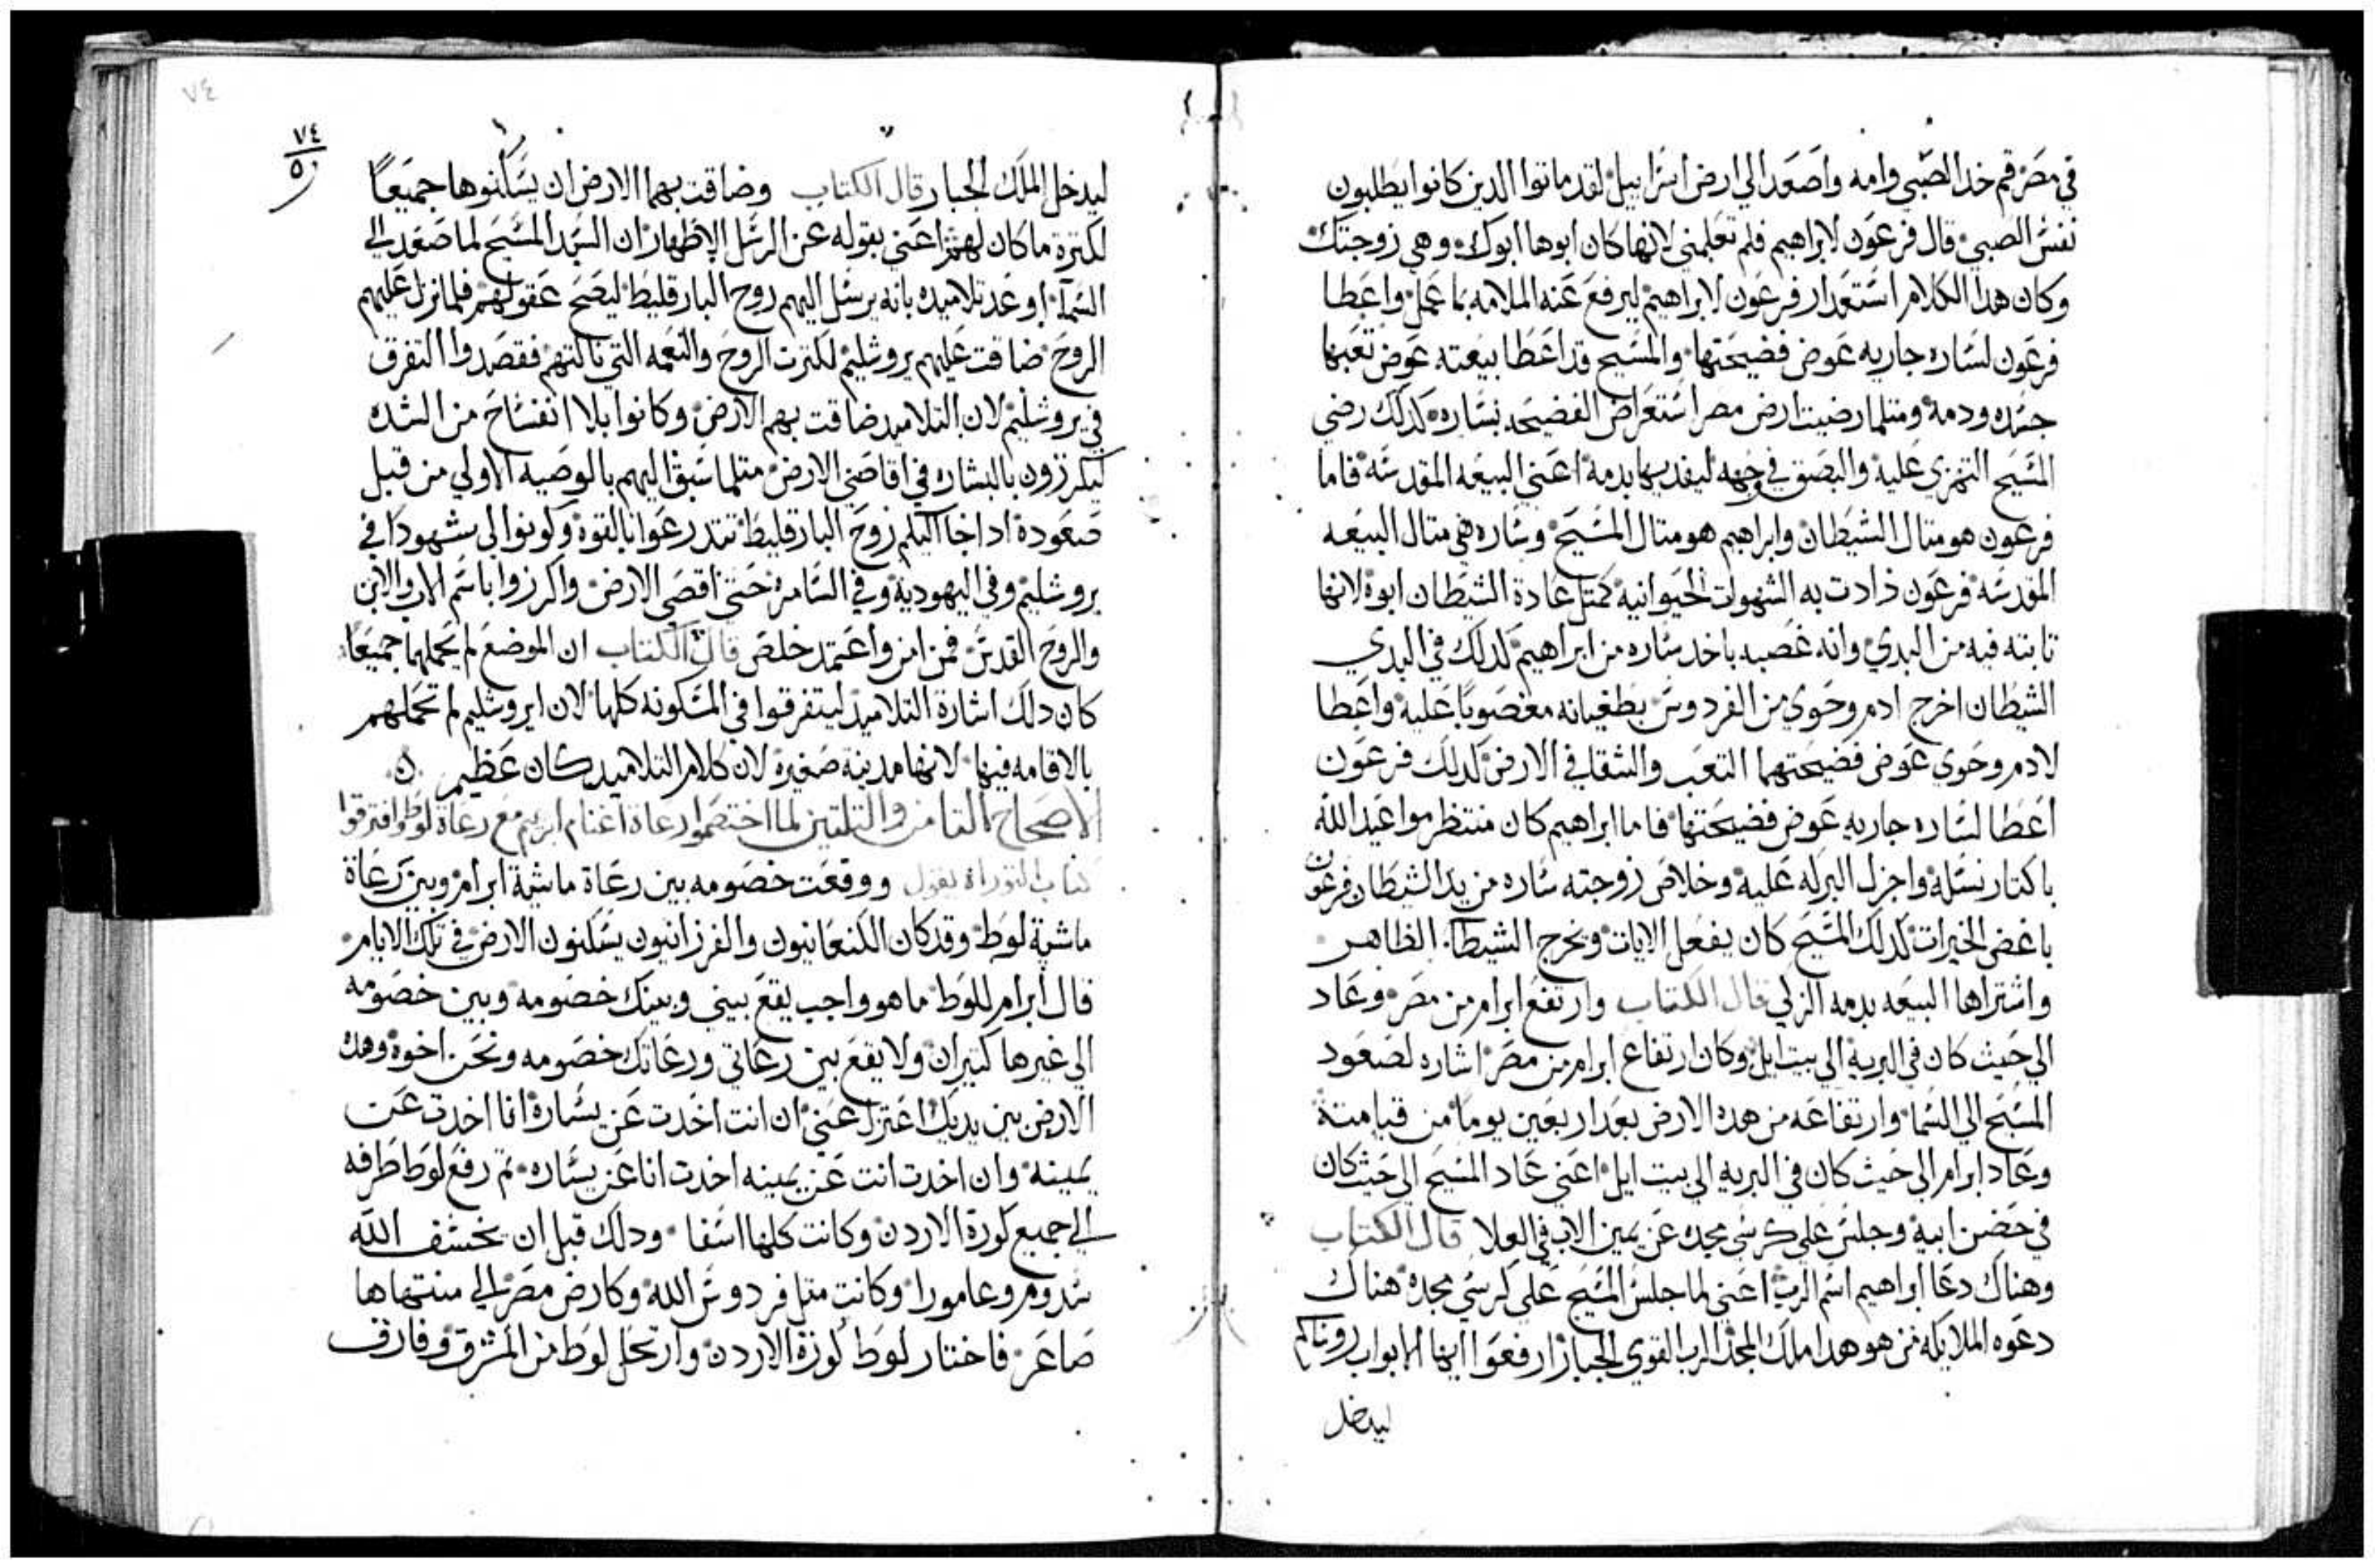 في مصر قم خد الصبي وامه واصعد الي ارض اسراييل لقد ماتوا الدين كانوا يطلبون
نفس الصبي قال فرعون لابراهيم فلم تعلمني لانها كان ابوها ابوك وهي زوجتك
وكان هدا الكلام استعدار فرعون لابراهيم ليرفع عنه الملامه بما عمل واعطا
فرعون لساره جاريه عوض فضيحتها والمسيح قد اعطا بيعته عوض تعبها
جسده ودمه ومتلما رضيت ارض مصر استعراض الفضيحه بساره كدلك رضي
المسيح التهزي عليه والبصق في وجهه ليفديها بدمه اعني البيعه المقدسه فاما
فرعون هو متال الشيطان وابراهيم هو متال المسيح وساره هي متال البيعه
المقدسه فرعون زادت به الشهوات الحيوانيه كمتل عادة الشيطان ابوه لانها
تابته فيه من البدي وانه غصبه باخد ساره من ابراهيم كدلك في البدي
الشيطان اخرج ادم وحوي من الفردوس بطغيانه مغصوبا عليه واعطا
لادم وحوي عوض فضيحتهما التعب والشقا في الارض كدلك فرعون
اعطا لساره جاريه عوض فضيحتها فاما ابراهيم كان منتظر مواعيد الله
باكتار نسله واجزل البركه عليه وخلاص زوجته ساره من يد الشيطان فرعون
باغض الخيرات كدلك المسيح كان يفعل الايات ويخرج الشيطان الظاهر
واشتراها البيعه بدمه الزكي قال الكتاب وارتفع ابرام من مصر وعاد
الي حيث كان في البريه الي بيت ايل وكان ارتفاع ابرام من مصر اشاره لصعود
المسيح الي السما وارتفاعه من هده الارض بعد اربعين يوما من قيامته
وعاد ابرام الي حيث كان في البريه الي بيت ايل اعني عاد المسيح الي حيث كان
في حضن ابيه وجلس علي كرسي مجده عن يمين الاب في العلا قال الكتاب
وهناك دعا ابراهيم اسم الرب اعني لما جلس المسيح علي كرسي مجده هناك
دعوه الملايكه من هو هدا ملك المجد الرب القوي الجبار ارفعوا ايها الابواب روساكم
ليدخل
٧٤
٧٤
ليدخل الملك الجبار قال الكتاب وضاقت بهما الارض ان يسكنوها جميعا
لكترة ما كان لهم اعني بقوله عن الرسل الاطهار ان السيد المسيح لما صعد الي
السمآ اوعد تلاميده بانه يرسل اليهم روح البارقليط ليصح عقولهم فلما نزل عليهم
الروح ضاقت عليهم يروشليم لكترت الروح والنعمه التي نالتهم فقصدوا التفرق
في يروشليم لان التلاميد ضاقت بهم الارض وكانوا بلا انفساح من الشده
ليكرزون بالبشاره في اقاصي الارض متلما سبق اليهم بالوصيه الاولي من قبل
صعوده ادا جا اليكم روح البارقليط تتدرعوا بالقوه وكونوا لي شهودا في
يروشليم وفي اليهوديه وفي السامره حتي اقصي الارض واكرزوا باسم الاب والابن
والروح القدس فمن امن واعتمد خلص قال الكتاب ان الموضع لم يحملهما جميعا
كان دلك اشارة التلاميد ليتفرقوا في المسكونه كلها لان ايروشليم لم تحملهم
بالاقامه فيها لانها مدينة صغيره لان كلام التلاميد كان عظيم
الاصحاح التامن والتلتين لما اختصموا رعاة اغنام ابرهيم مع رعاة لوط وافترقوا
كتاب التوراة يقول ووقعت خصومه بين رعاة ماشية ابرام وبين رعاة
ماشية لوط وقد كان الكنعانيون والفرزانيون يسكنون الارض في تلك الايام
قال ابرام للوط ما هو واجب يقع بيني وبينك خصومه وبين خصومه
الي غيرها كتيران ولا يقع بين رعاتي ورعاتك خصومه ونحن اخوه وهده
الارض بين يديك اعتزل عني ان انت اخدت عن يساره انا اخدت عن
يمينه وان اخدت انت عن يمينه اخدت انا عن يساره تم رفع لوط طرفه
الي جميع كورة الاردن وكانت كلها اسقا ودلك قبل ان يخسف الله
سدوم وعامورا وكانت متل فردوس الله وكارض مصر الي منتهاها
صاعر فاختار لوط كورة الاردن وارتحل لوط من المشرق وفارق